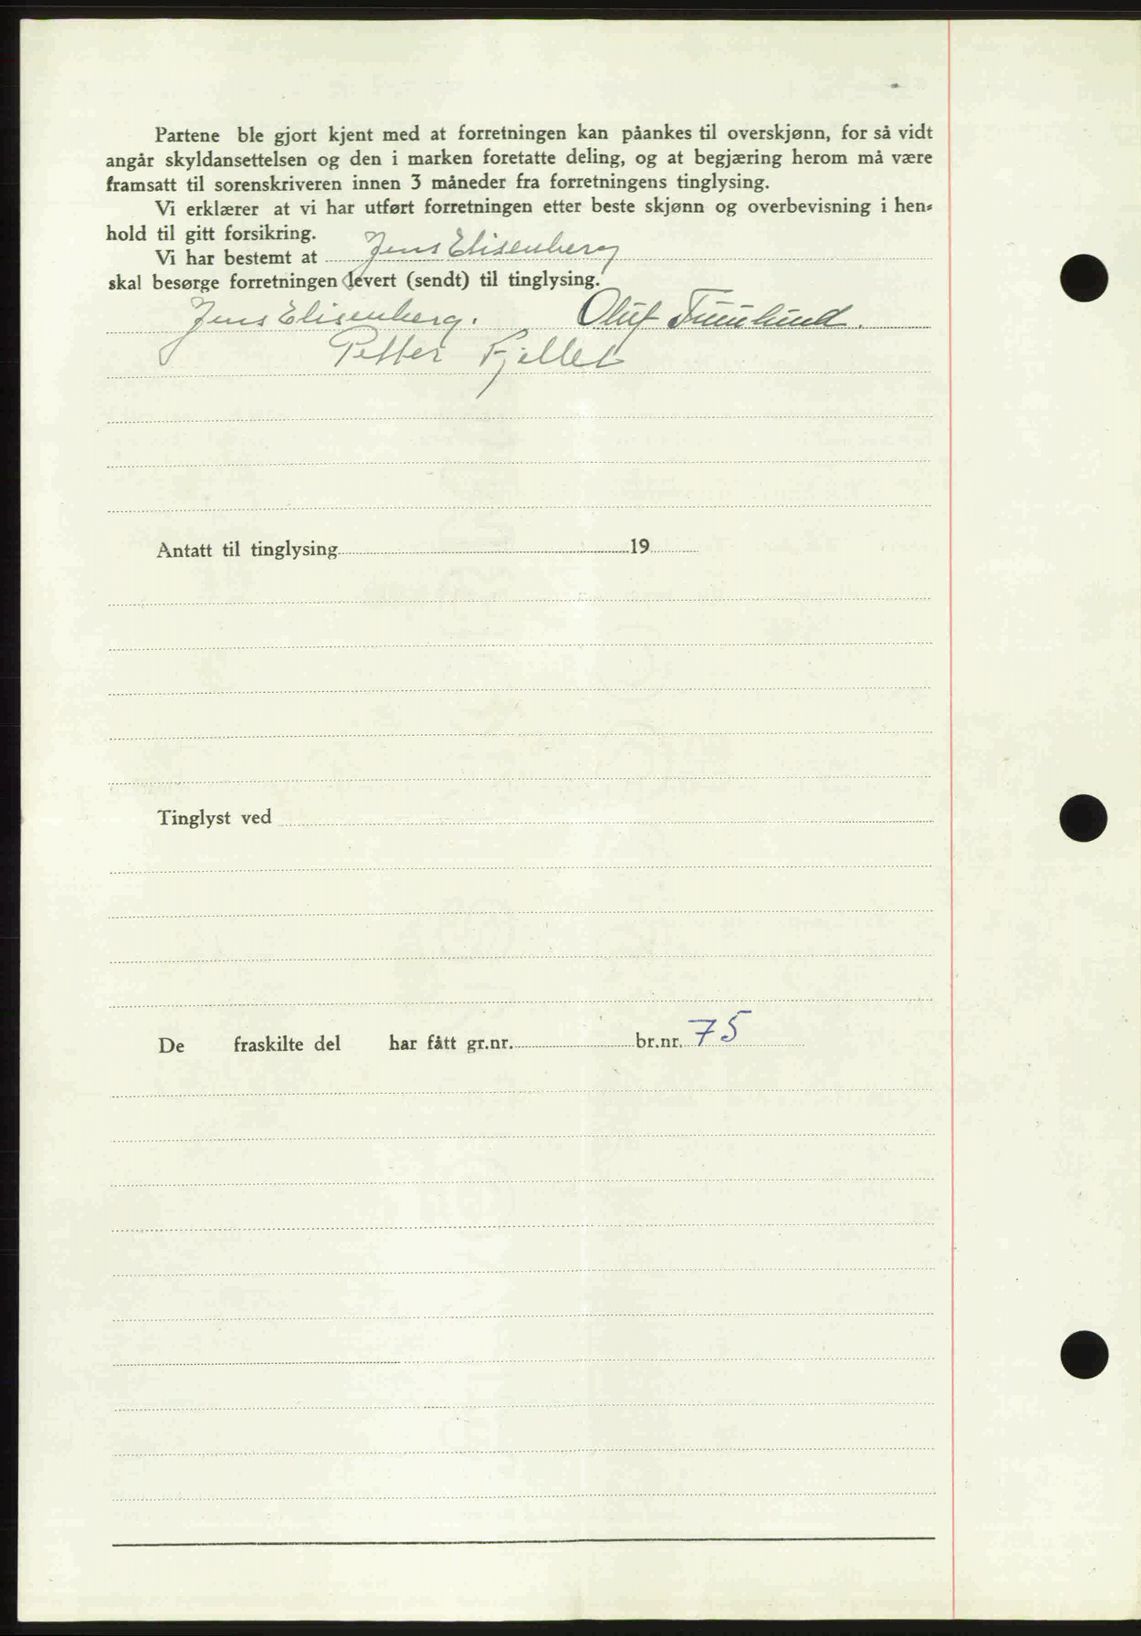 Partene ble gjort kjent med at forretningen kan påankes til overskjønn, for så vidt
angår skyldansettelsen og den i marken foretatte deling, og at begjæring herom må være
framsatt til sorenskriveren innen 3 måneder fra forretningens tinglysing.
Vi erklærer at vi har utført forretningen etter beste skjønn og overbevisning i hen-
hold til gitt forsikring.
Vi har bestemt at Jens Elisenberg
skal besørge forretningen levert (sendt) til tinglysing.
Jens Elisenberg. Oluf
Petter Fjellet
Antatt til tinglysing 19
Tinglyst ved
De fraskilte del har fått gr.nr. br.nr. 75